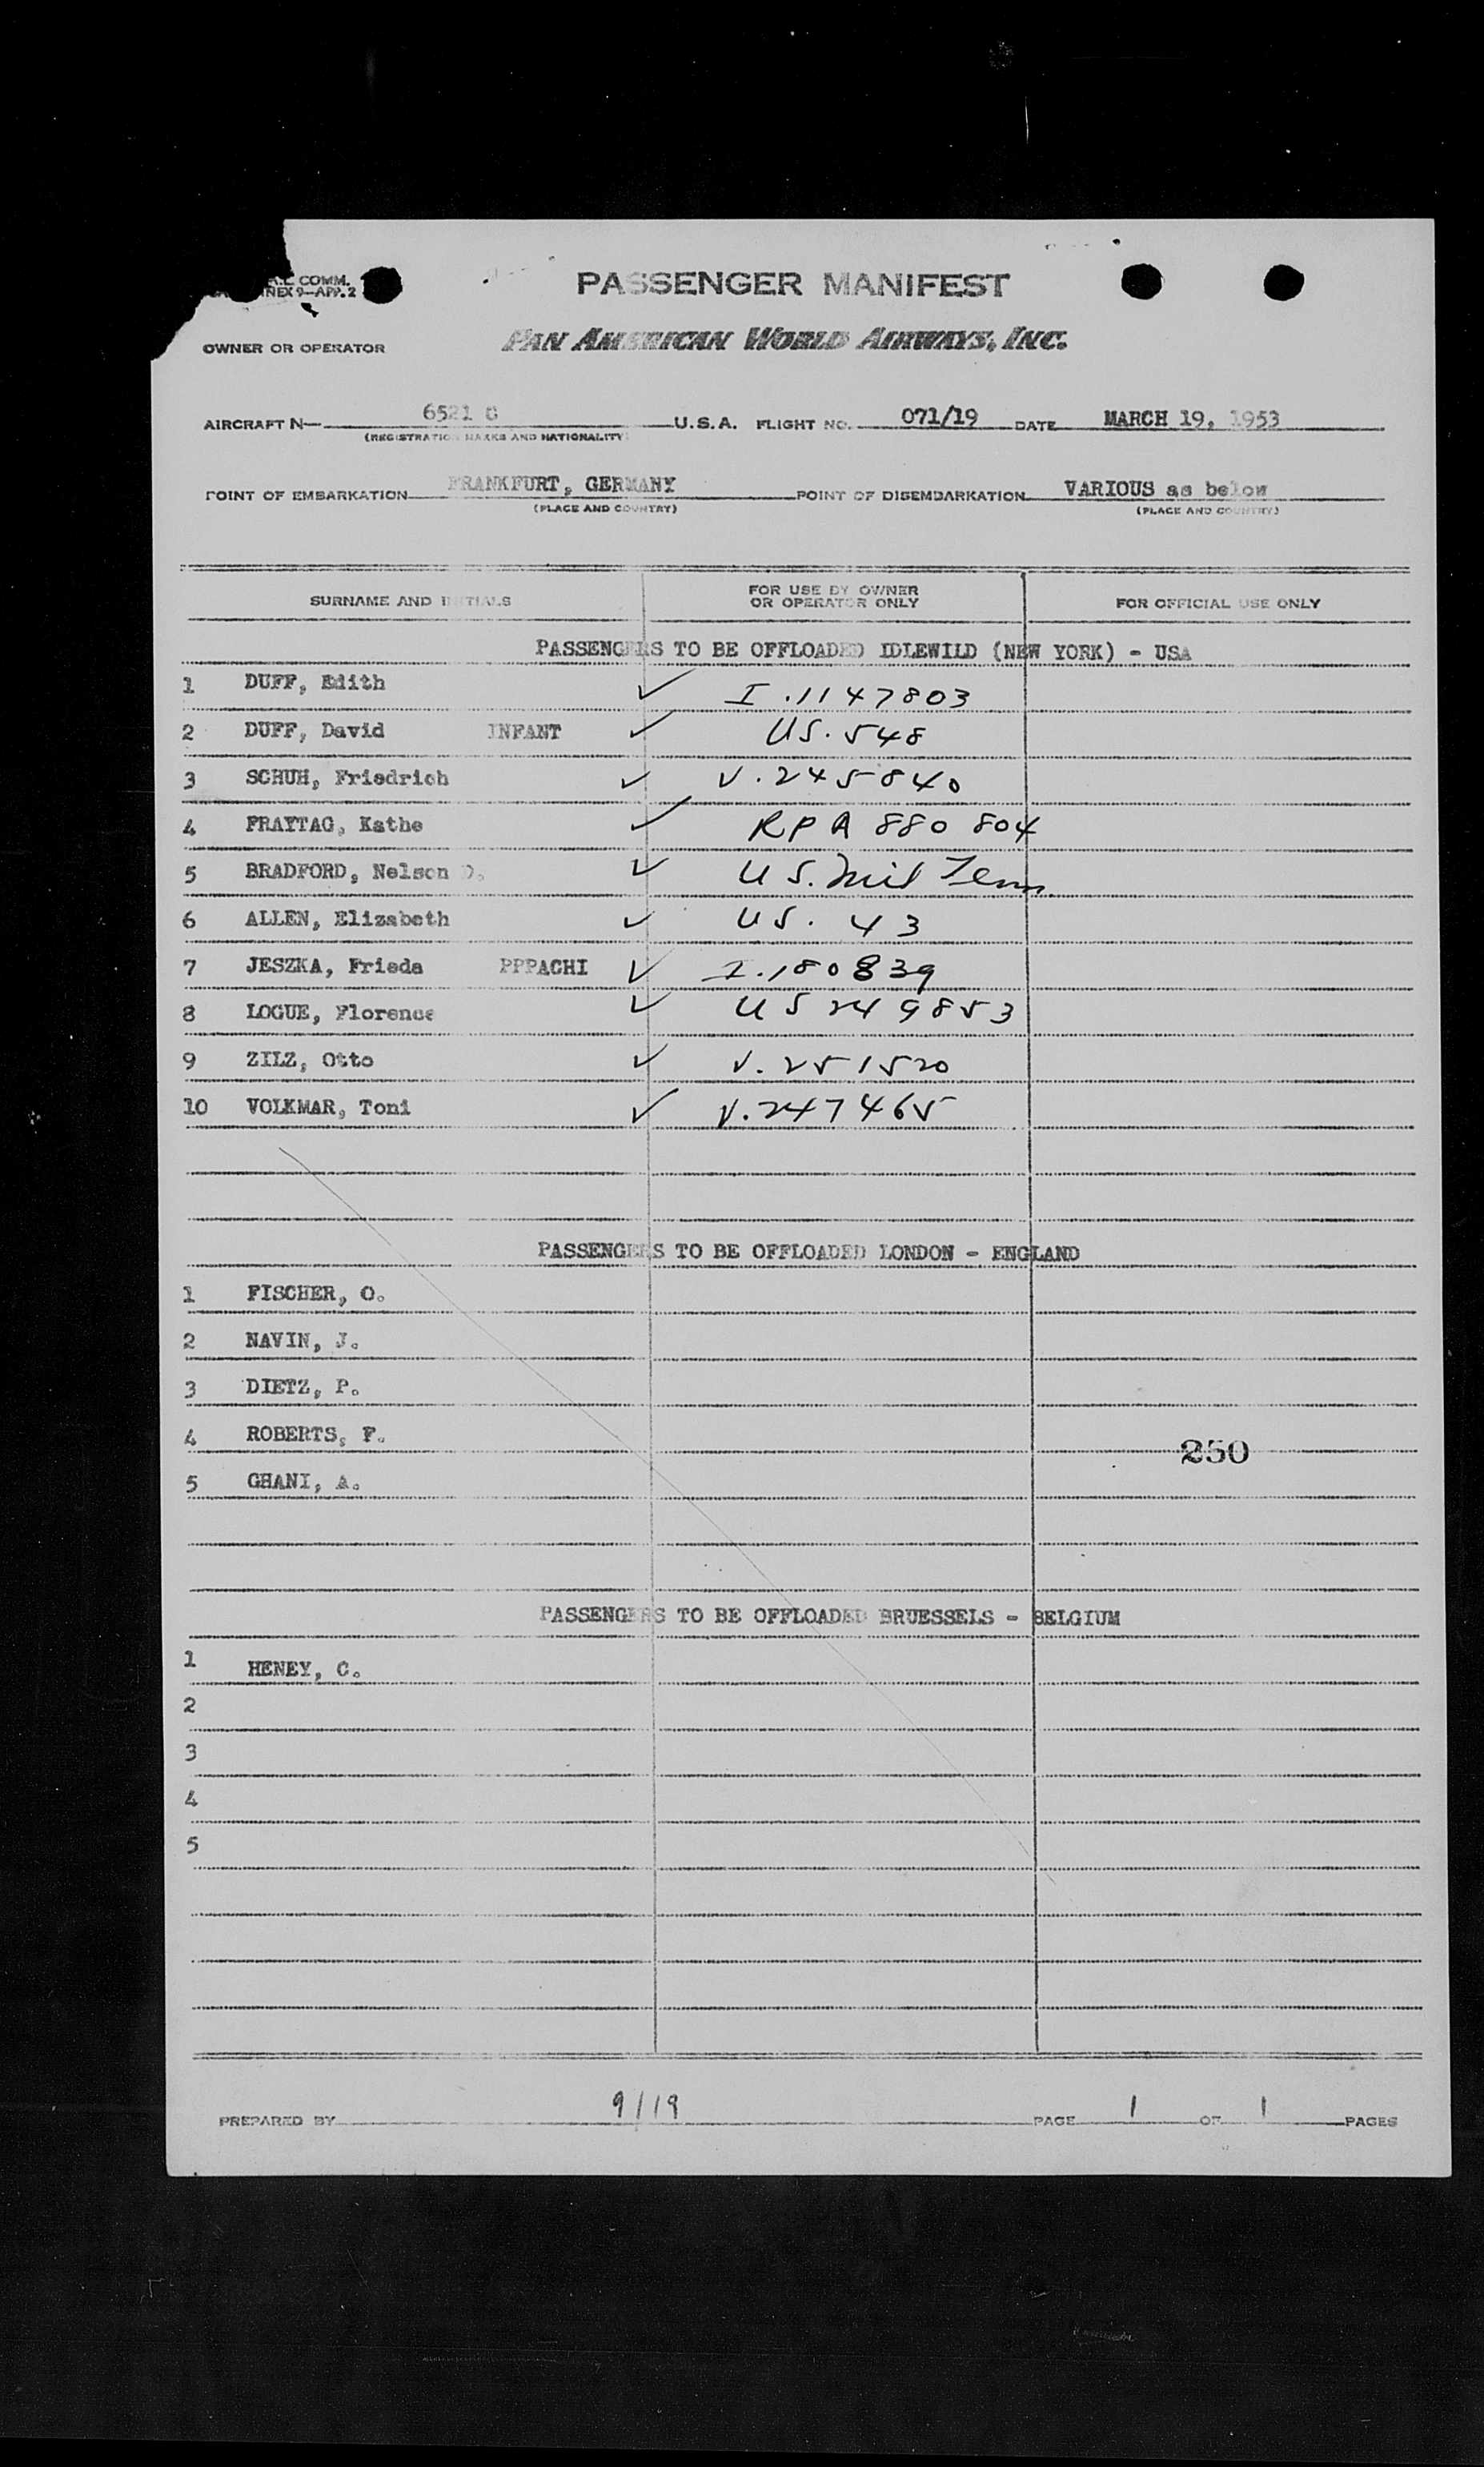 COMM.
ANNEX 9—APP. 2
PASSENGER MANIFEST
OWNER OR OPERATOR PAN AMERICAN WORLD AIRWAYS, INC.
AIRCRAFT N— 6521 C U.S.A. FLIGHT NO. 071/19 DATE MARCH 19, 1953
(REGISTRATION MARKS AND NATIONALITY)
POINT OF EMBARKATION FRANKFURT, GERMANY POINT OF DISEMBARKATION VARIOUS as below
(PLACE AND COUNTRY) (PLACE AND COUNTRY)
SURNAME AND INITIALS FOR USE BY OWNER OR OPERATOR ONLY FOR OFFICIAL USE ONLY
PASSENGERS TO BE OFFLOADED IDLEWILD (NEW YORK) - USA
1 DUFF, Edith ✓ I.1147803
2 DUFF, David INFANT ✓ US.548
3 SCHUH, Friedrich ✓ V.245840
4 FRAYTAG, Kathe ✓ RPA 880 804
5 BRADFORD, Nelson D. ✓ US. Mil
6 ALLEN, Elizabeth ✓ US. 43
7 JESZKA, Frieda PPPACHI ✓ I.180839
8 LOGUE, Florence ✓ US 249853
9 ZILZ, Otto ✓ V.251520
10 VOLKMAR, Toni ✓ V.247465
PASSENGERS TO BE OFFLOADED LONDON - ENGLAND
1 FISCHER, O.
2 NAVIN, J.
3 DIETZ, P.
4 ROBERTS, F.
250
5 GHANI, A.
PASSENGERS TO BE OFFLOADED BRUESSELS - BELGIUM
1 HENEY, C.
2
3
4
5
PREPARED BY 9/19 PAGE 1 OF 1 PAGES